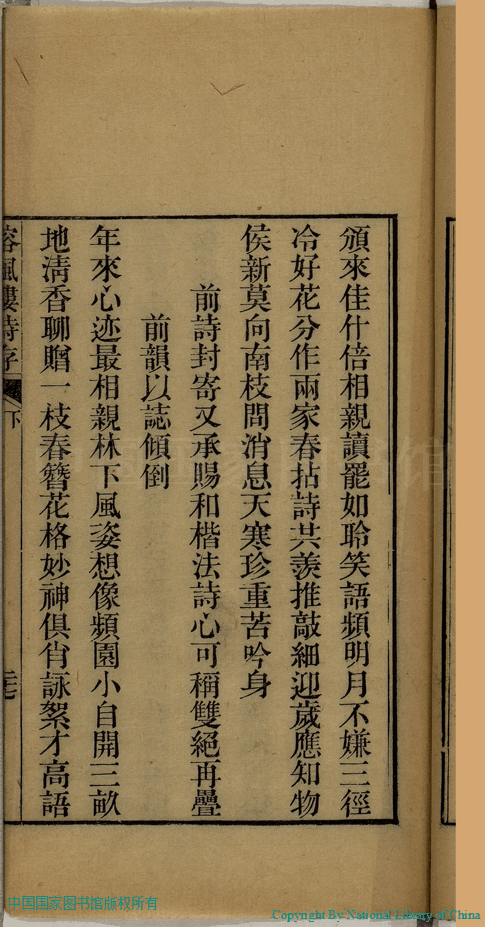 頒來佳什倍相親讀罷如聆笑語頻明月不嫌三徑
冷好花分作兩家春拈詩共羨推敲細迎歲應知物
侯新莫向南枝問消息天寒珍重苦吟身
前詩封寄又承賜和楷法詩心可稱雙絕再疊
前韻以誌傾倒
年來心迹最相親林下風姿想像頻園小自開三畝
地淸香聊贈一枝春簪花格妙神俱肖詠絮才高語
楓樓詩存
下
中国国家图书馆版权所有
Copyright By National Library of China